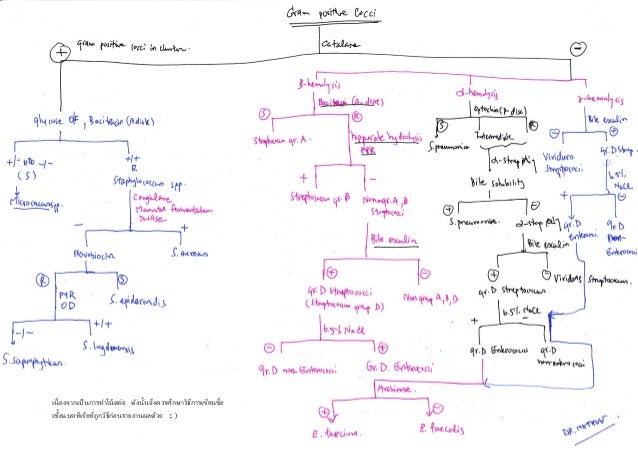 Gram positive cocci
Catalase
+
gram positive cocci in cluster.
-
glucose OF, Bacitracin (A disk)
+/- -/-
(S)
Micrococcus spp.
+/+
R
Staphylococcus spp.
Coagulase
Mannitol fermentation
DNAse
-
+
Novobiocin
S. aureus
R
S
PYR
OD
S. epidermidis
-/-
+/+
S. saprophyticus
S. lugdunensis
β-hemolysis
Bacitracin (A-disc)
S
R
Streptococcus gr. A
hippurate hydrolysis
PYR
+
-
Streptococcus gr. B
Non gr. A, B
Streptococci
Bile esculin
+
-
gr. D Streptococci
(Streptococcus group D)
Non group A, B, D
6.5% NaCl
-
+
gr. D non Enterococci
Gr. D. Enterococci
Arabinose
+
-
E. faecium.
E. faecalis
α-hemolysis
optochin (P-disc)
S
R
S. pneumoniae
Intermediate
α-strep
Bile solubility
+
-
S. pneumoniae
α-strep
Bile esculin
+
-
gr. D Streptococcus
Viridans Streptococcus.
6.5% NaCl
+
-
gr. D Enterococci
gr. D
non enterococci
γ-hemolysis
Bile esculin
-
+
Viridans
Streptococci
gr. D Strep
6.5%
NaCl
+
-
gr. D
Enterococci
gr. D
Enterococci
เนื่องจากเป็นการทำโน้ตย่อ ดังนั้นจึงควรศึกษาวิธีการเขียนชื่อ
เชื้อแบคทีเรียที่ถูกวิธีก่อนรายงานผลด้วย : )